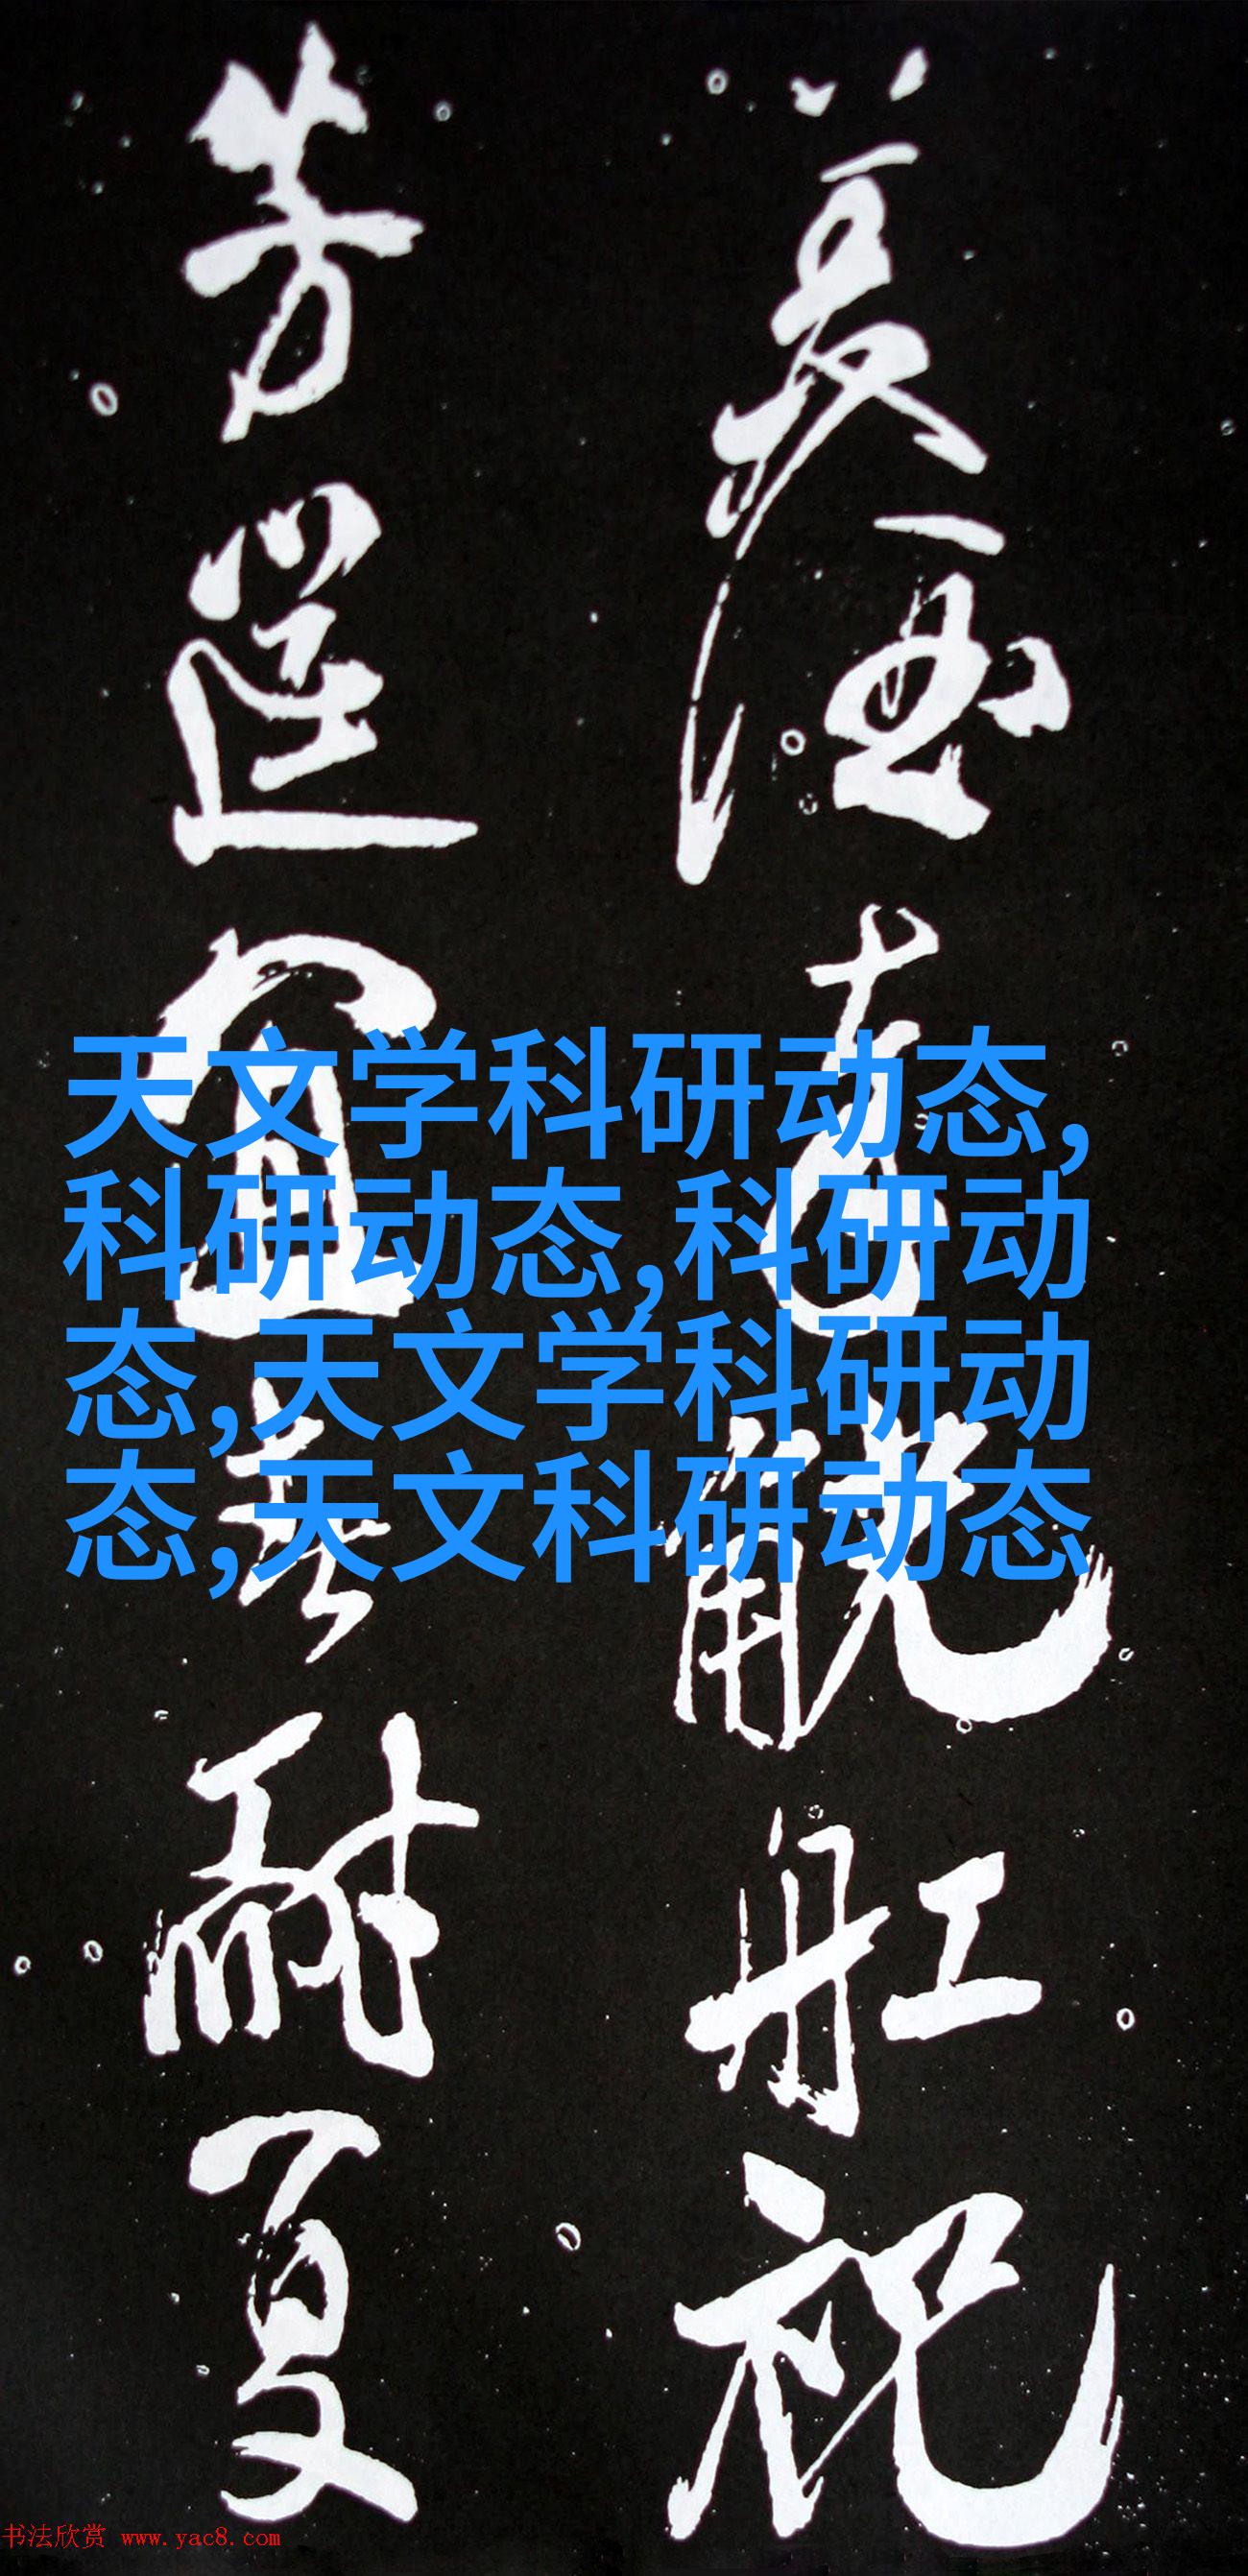 觥舡祝
芳筵宜春耐夏
天文学科研动态,
科研动态,科研动
态,天文学科研动
态,天文科研动态
书法欣赏 www.yac8.com